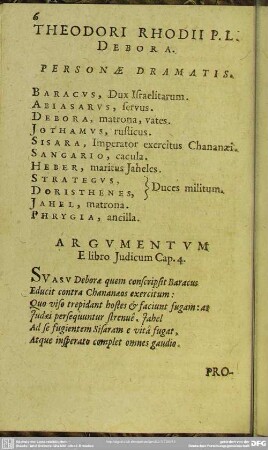 6
THEODORI RHODII P. L.
DEBORA.
PERSONÆ DRAMATIS.
BARACVS, Dux Israelitarum.
ABIASARVS, servus.
DEBORA, matrona, vates.
JOTHAMVS, rusticus.
SISARA, Imperator exercitus Chananæi.
SANGARIO, cacula.
HEBER, maritus Jaheles.
STRATEGVS,
DORISTHENES, } Duces militum.
JAHEL, matrona.
PHRYGIA, ancilla.
ARGVMENTVM
E libro Judicum Cap. 4.
SVASV Deboræ quem conscripsit Baracus
Educit contra Chananæos exercitum:
Quo viso trepidant hostes & faciunt fugam: at
Judæi persequuntur strenuè. Jahel
Ad se fugientem Sisaram e vitâ fugat,
Atque insperato complet omnes gaudio.
PRO-